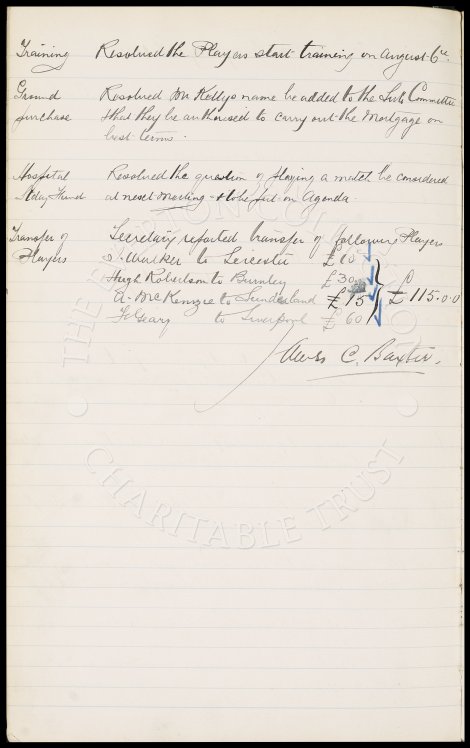 Training Resolved the Players start training on August 6th.
Ground purchase Resolved Mr Kellys name be added to the Sub Committee
that they be authorised to carry out the Mortgage on
best terms.
Hospital Fund Resolved the question of playing a match be considered
at next Meeting & to be put on Agenda.
Transfer of Players Secretary reported transfer of following Players
Walker to Leicester £10
Hugh Robertson to Burnley £30
A. McKenzie to Sunderland £15 £115.0.0
F Geary to Liverpool £60
James C. Baxter.
THE
CHARITABLE TRUST